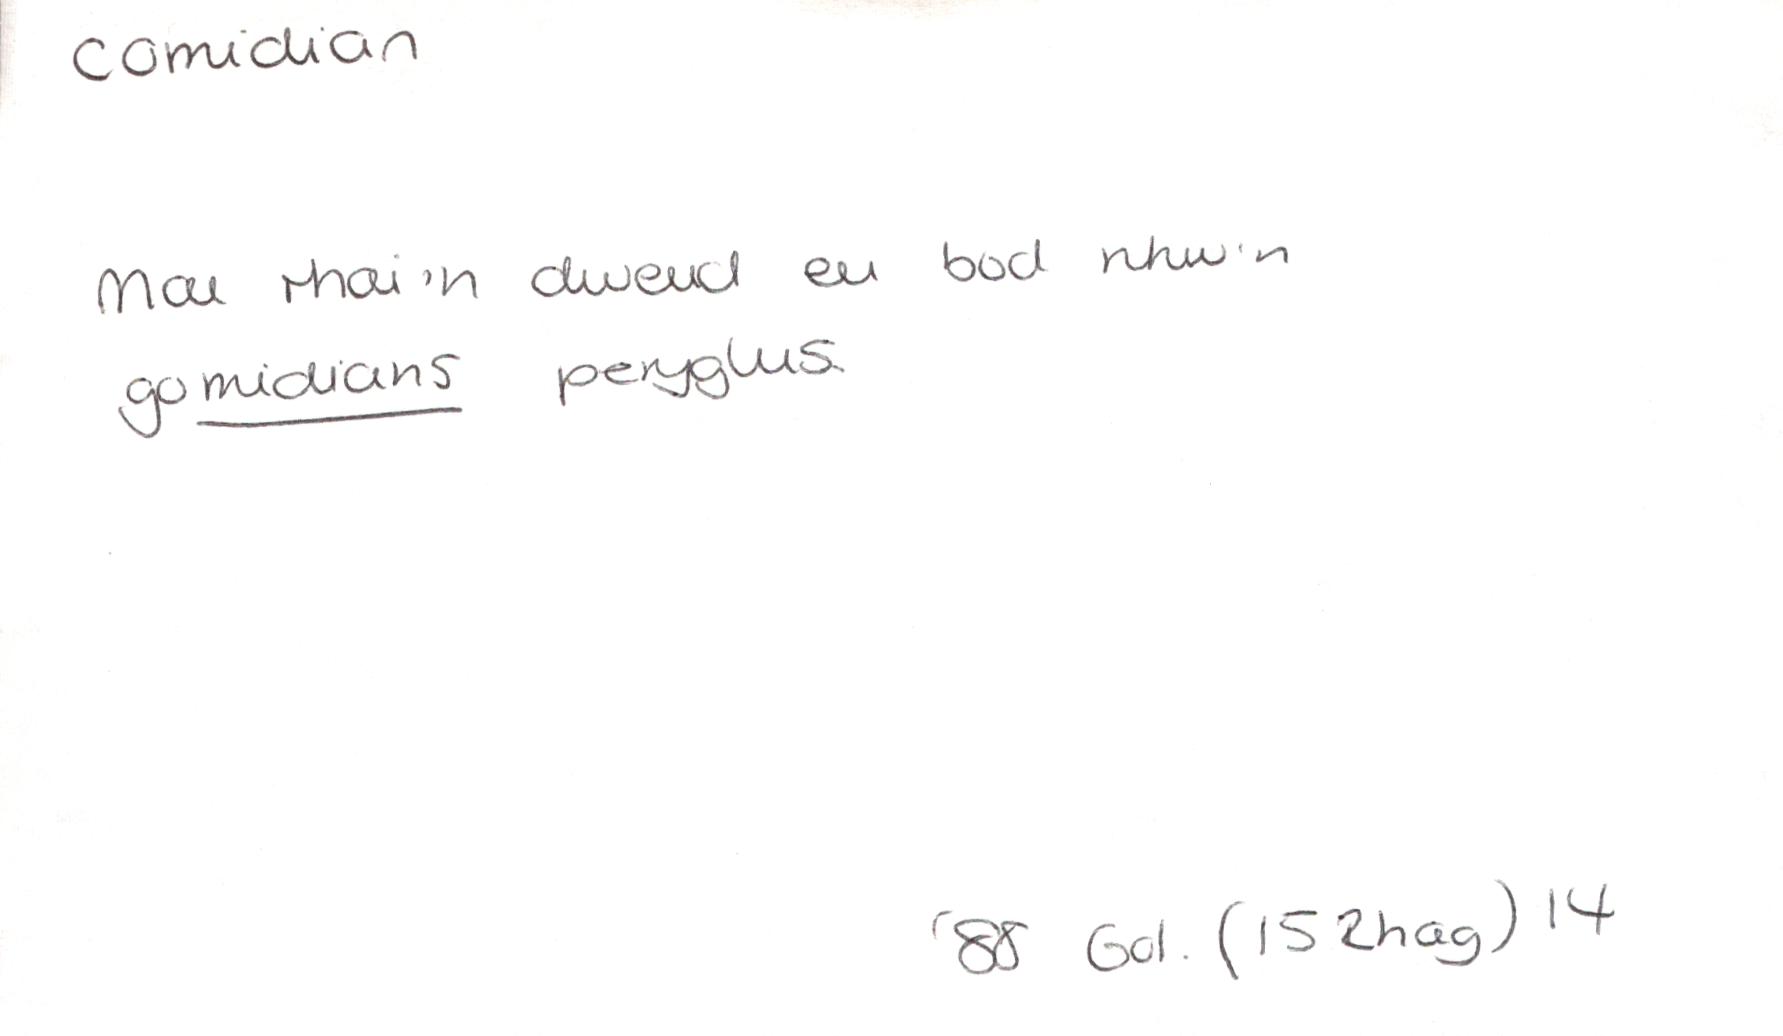 comidian
Mae rhai'n dweud eu bod nhw'n
gomidians peryglus.
'88 Gol. (15 Rhag) 14